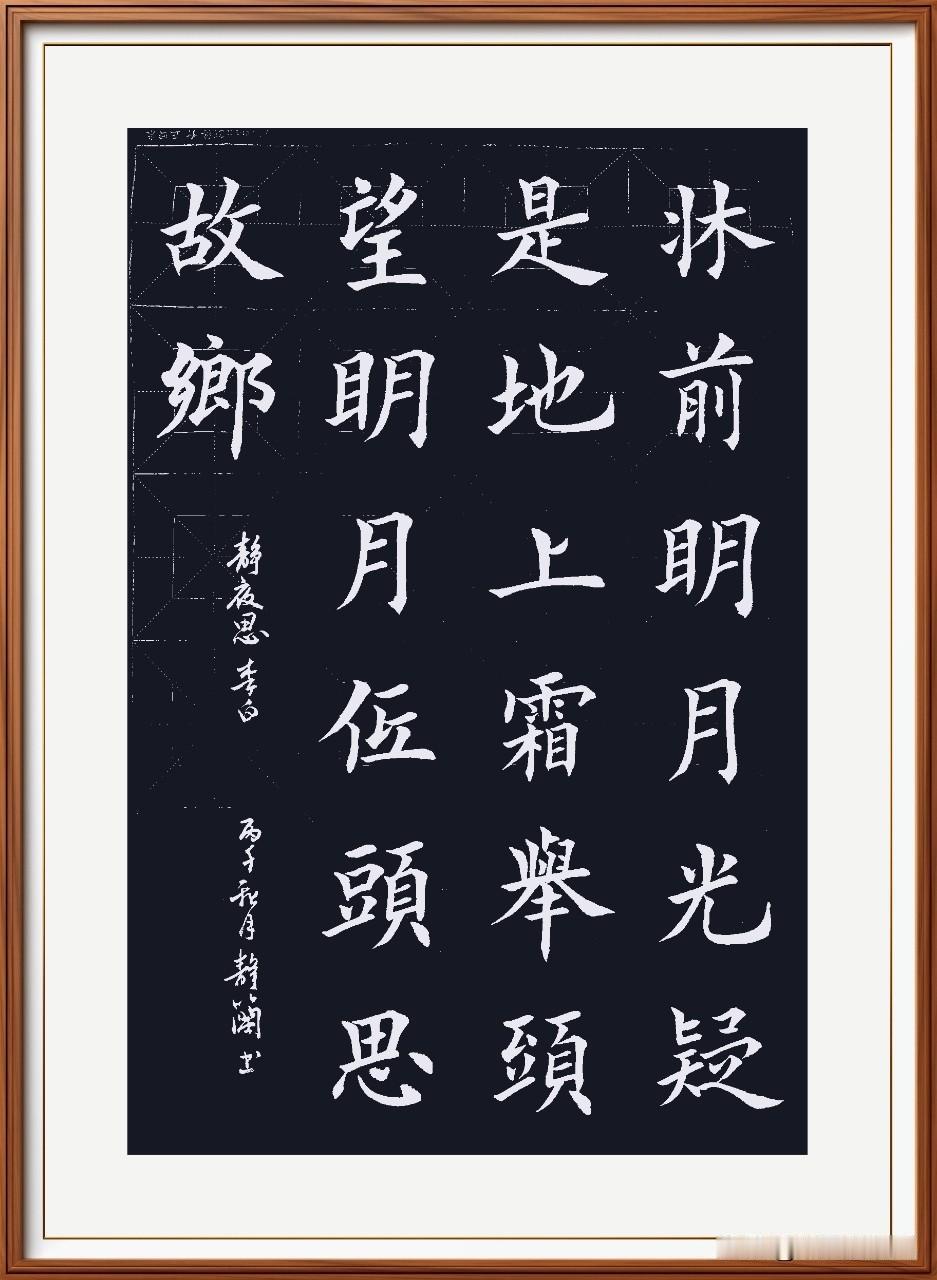 牀前明月光疑
是地上霜舉頭
望明月低頭思
故鄉
靜夜思 李白
丙午秋月靜蘭书